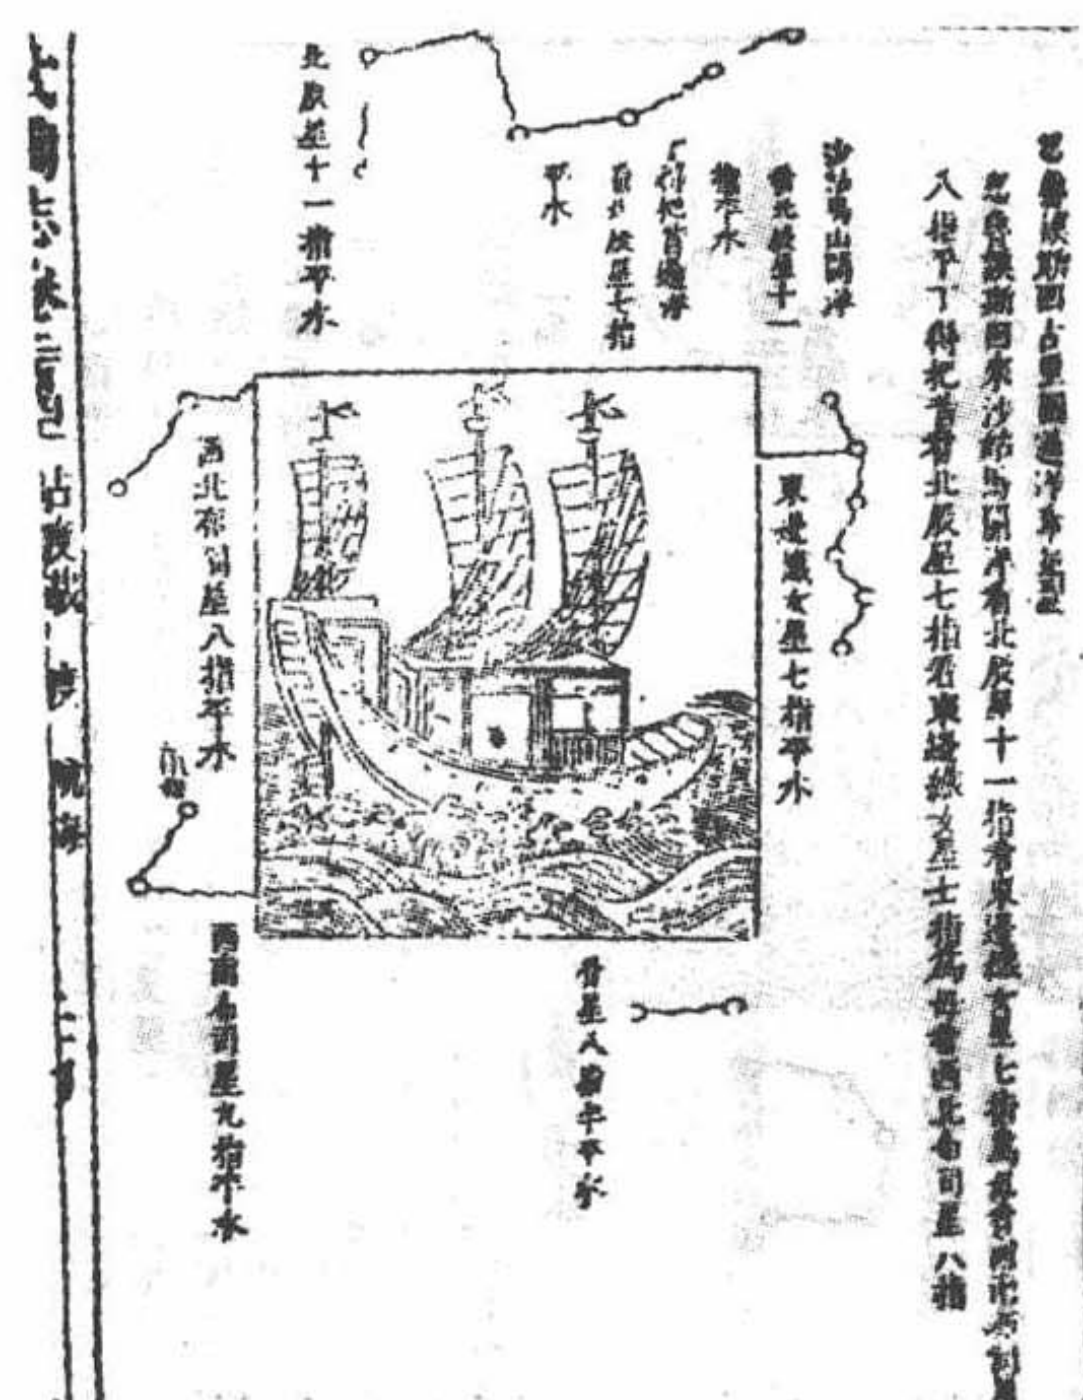 忽魯謨斯國古里國過洋牽星圖
忽魯謨斯國來沙姑馬開洋看北辰星十一指看東邊織女星七指為母看西南布司星
八指平丁得把昔看北辰星七指看東邊織女星七指為母看西北布司星八指
沙姑馬山開洋
看北辰星十一
指平水
丁得把昔過洋
看北辰星七指
平水
北辰星十一指平水
東邊織女星七指平水
西北布司星八指平水
西南布司星九指平水
骨星八指半平水
占度載
度
航海